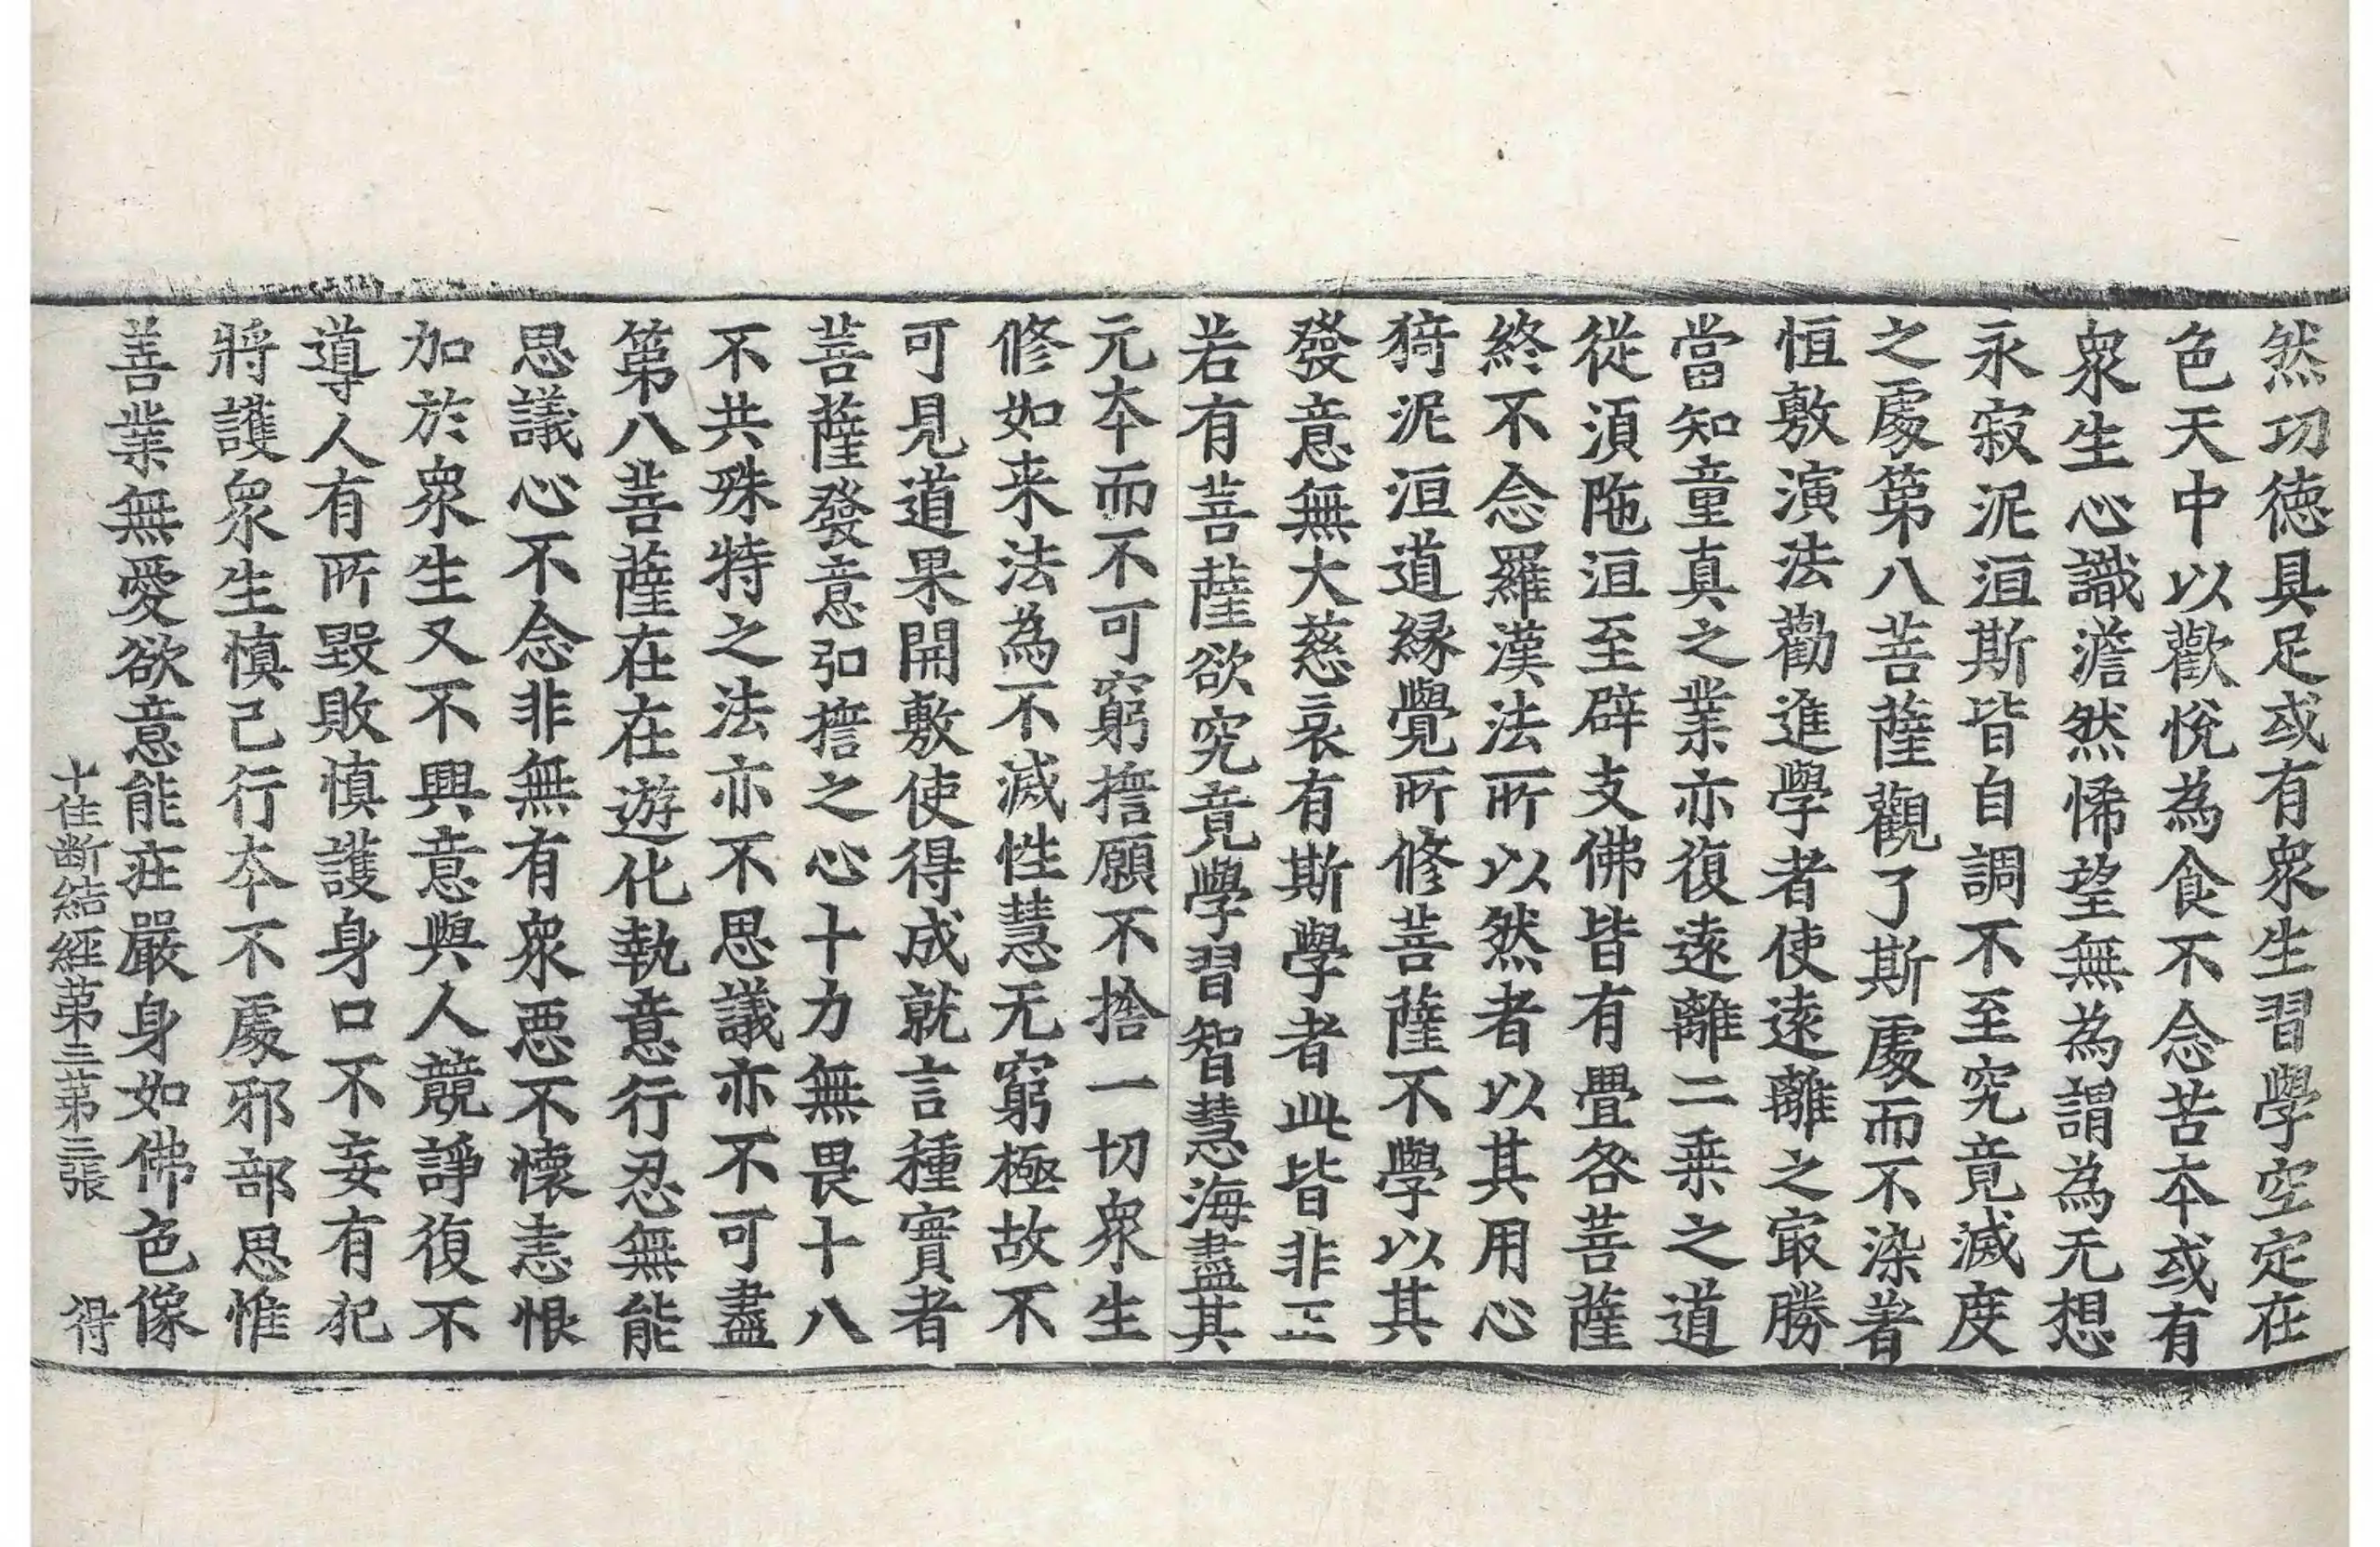 然功德具足或有衆生習學空定在
色天中以歡悅為食不念苦本或有
衆生心識澹然悕望無為謂為无想
永寂泥洹斯皆自調不至究竟滅度
之處第八菩薩觀了斯處而不染著
恒敷演法勸進學者使遠離之冣勝
當知童真之業亦復遠離二乘之道
從須陁洹至辟支佛皆有疊各菩薩
終不念羅漢法所以然者以其用心
猗泥洹道緣覺所修菩薩不學以其
發意無大慈哀有斯學者此皆非正
若有菩薩欲究竟學習智慧海盡其
元本而不可窮擔願不捨一切衆生
修如来法為不滅性慧无窮極故不
可見道果開敷使得成就言種實者
菩薩發意弘擔之心十力無畏十八
不共殊特之法亦不思議亦不可盡
第八菩薩在在遊化執意行忍無能
思議心不念非無有衆惡不懷恚恨
加於衆生又不興意與人競諍復不
導人有所毀敗慎護身口不妄有犯
將護衆生慎己行本不處邪部思惟
善業無愛欲意能莊嚴身如佛色像
十住断結經第三第三張 得